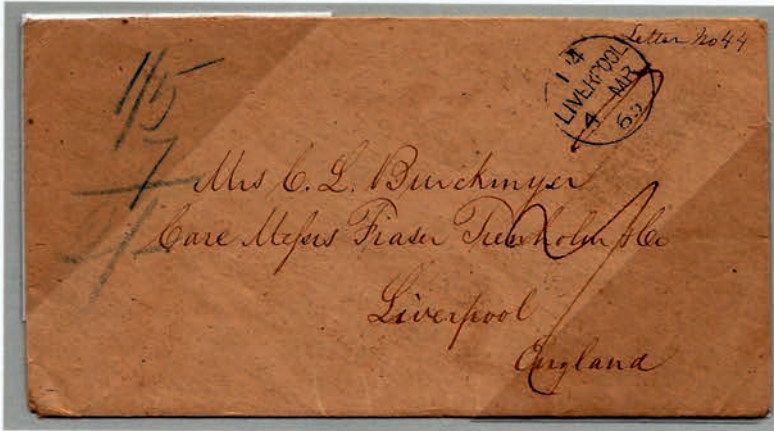 Letter No 44
14
LIVERPOOL
4 MR
65
1/5
7
2/-
Mrs C. L. Burckmyer
Care Messrs Fraser Trenholm & Co
Liverpool
England